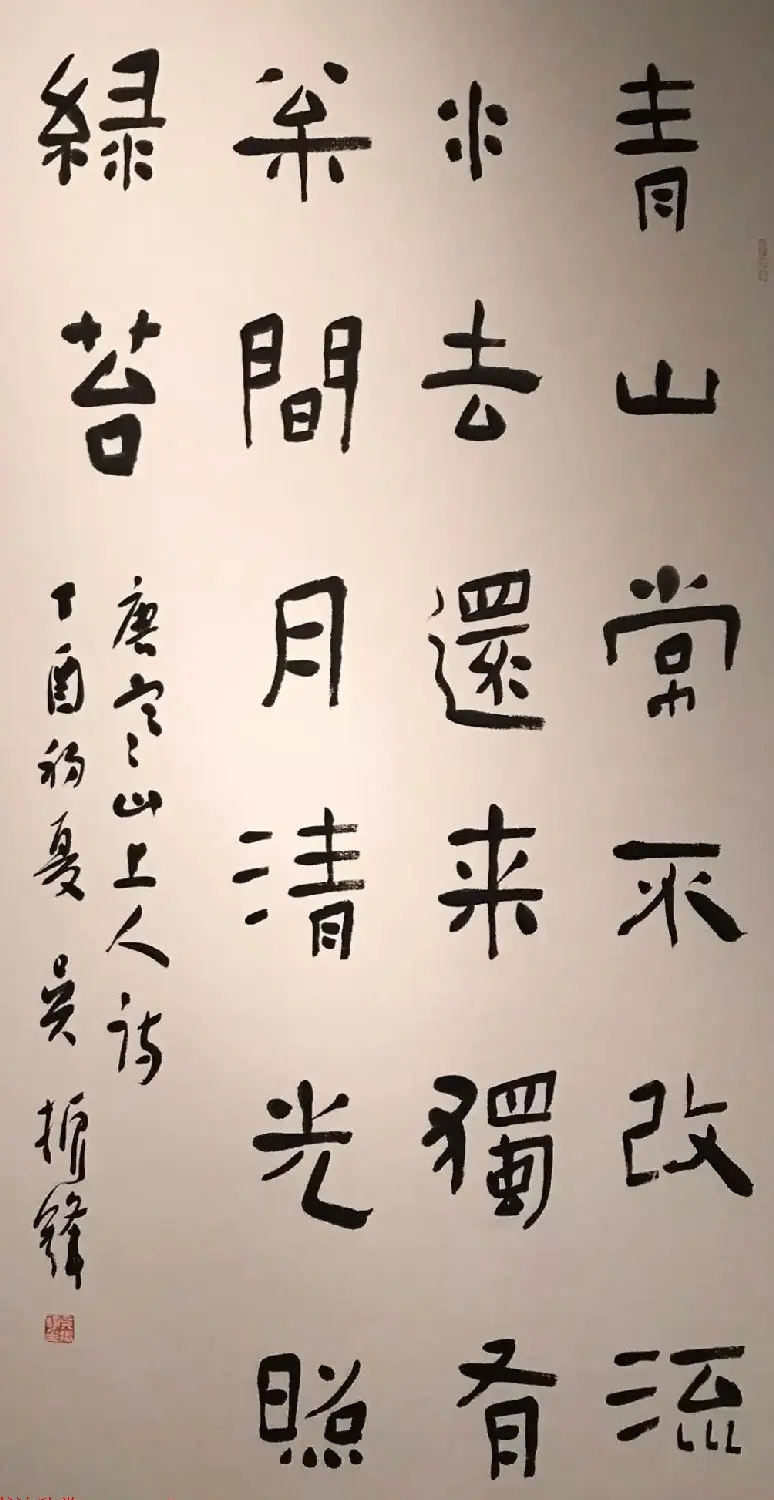 青山常不改流
水去還来獨有
枀間月清光照
緑苔
唐寒山上人詩
丁酉初夏 吴振鋒